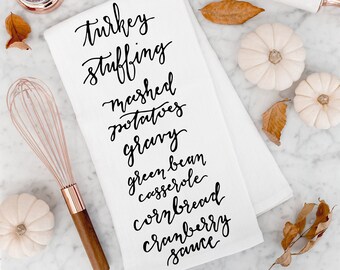 turkey
stuffing
mashed
potatoes
gravy
green bean
casserole
cornbread
cranberry
sauce